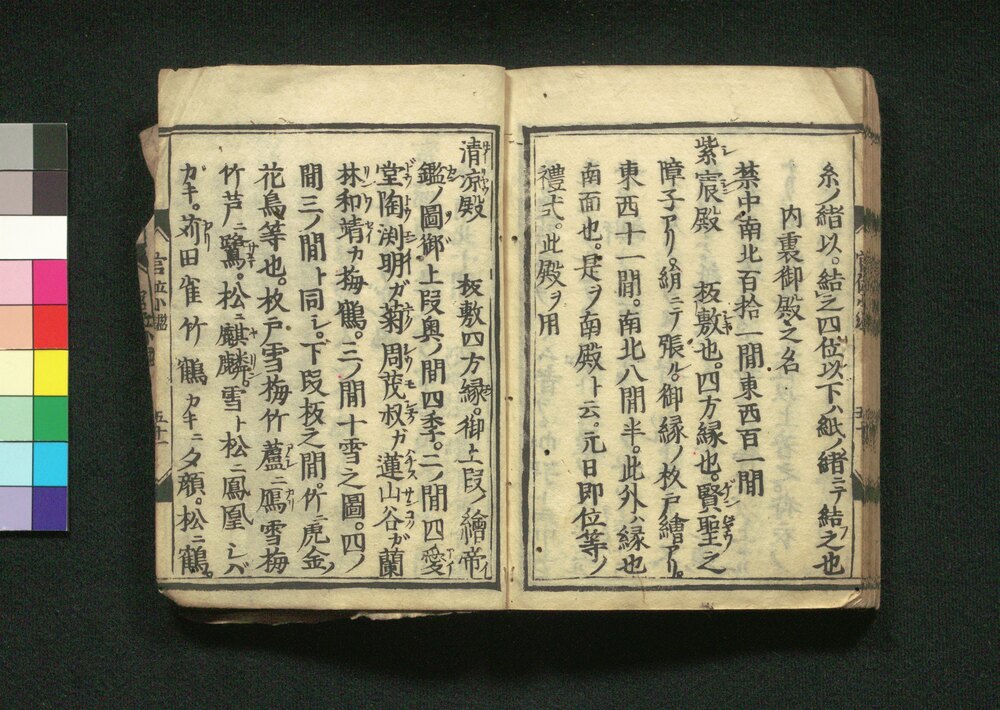 糸ノ緒以。結之四位以下ハ紙ノ緒ニテ結之也
内裏御殿之名
禁中南北百拾一間東西百一間
紫宸殿 板敷也。四方縁也。賢聖之
障子アリ。絹ニテ張ル。御縁ノ杉戸繪アリ。
東西十一間。南北八間半。此外ハ縁也
南面也。是ヲ南殿ト云。元日即位等ノ
禮式。此殿ヲ用
清凉殿 板敷四方縁。御上段ノ繪帝
鑑ノ圖御上段奥ノ間四季。二ノ間四愛
堂陶渕明ガ菊周茂叔ガ蓮山谷ガ蘭
林和靖カ梅鶴。三ノ間十雪之圖。四ノ
間三ノ間ト同シ。下段板之間。竹ニ虎金ノ
花鳥等也。杉戸雪梅竹蘆ニ鴈雪梅
竹芦ニ鷺。松ニ麒麟。雪ト松ニ鳳凰シバ
ガキ。苅田雀竹鶴カキニ夕顔。松ニ鶴。
五十一